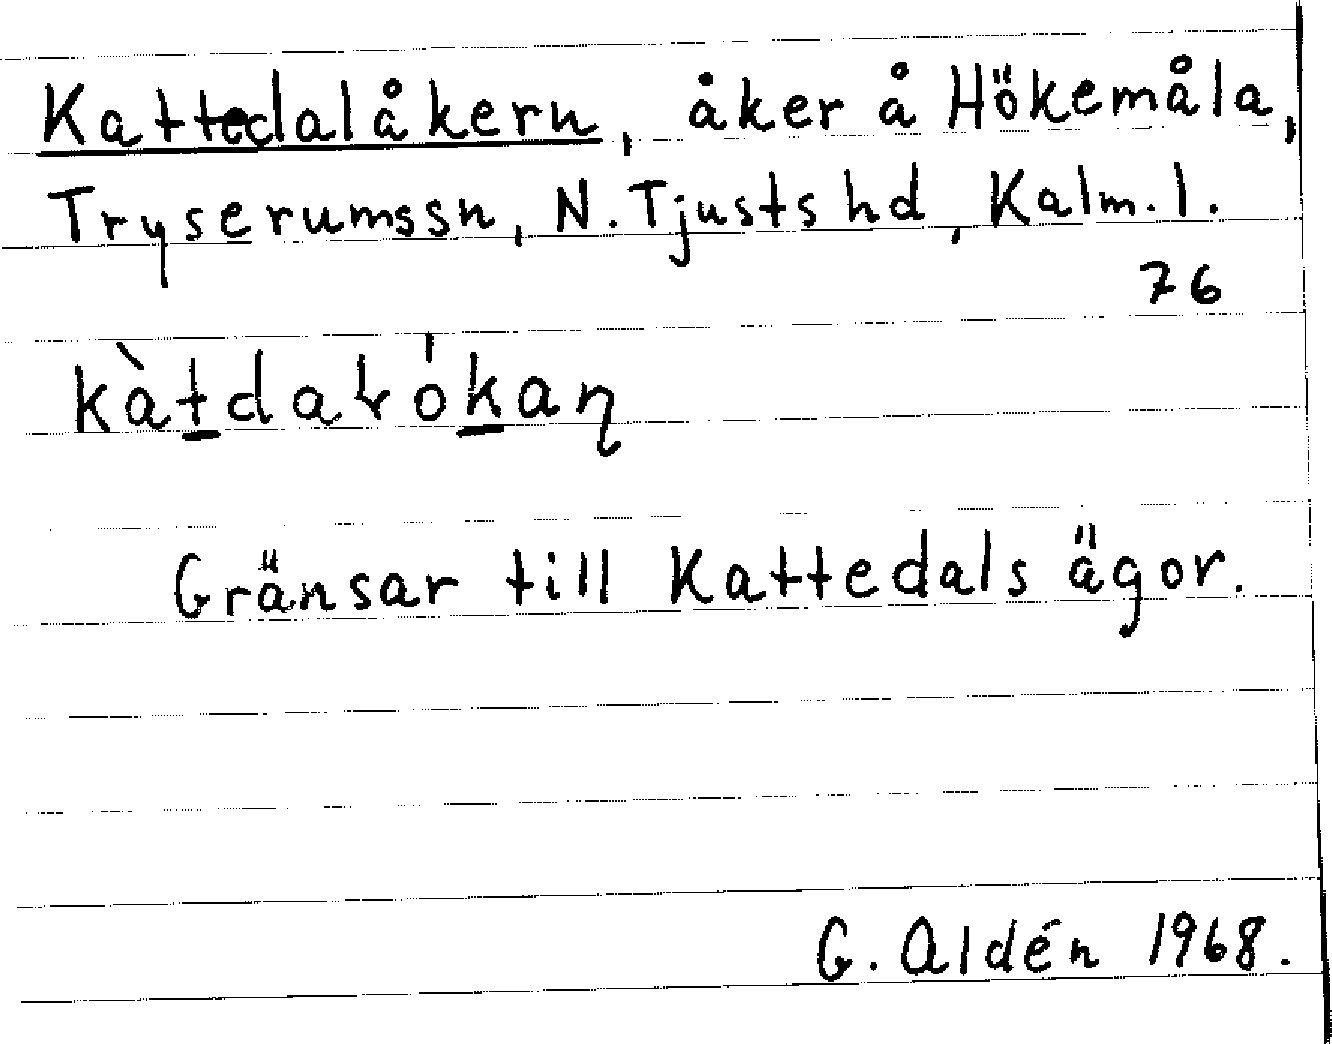 Kattedalåkern, åker å Hökemåla,
Tryserumssn, N. Tjusts hd, Kalm. l.
76
kàt̲daɫók̲aɳ
Gränsar till Kattedals ägor.
G. Aldén 1968.